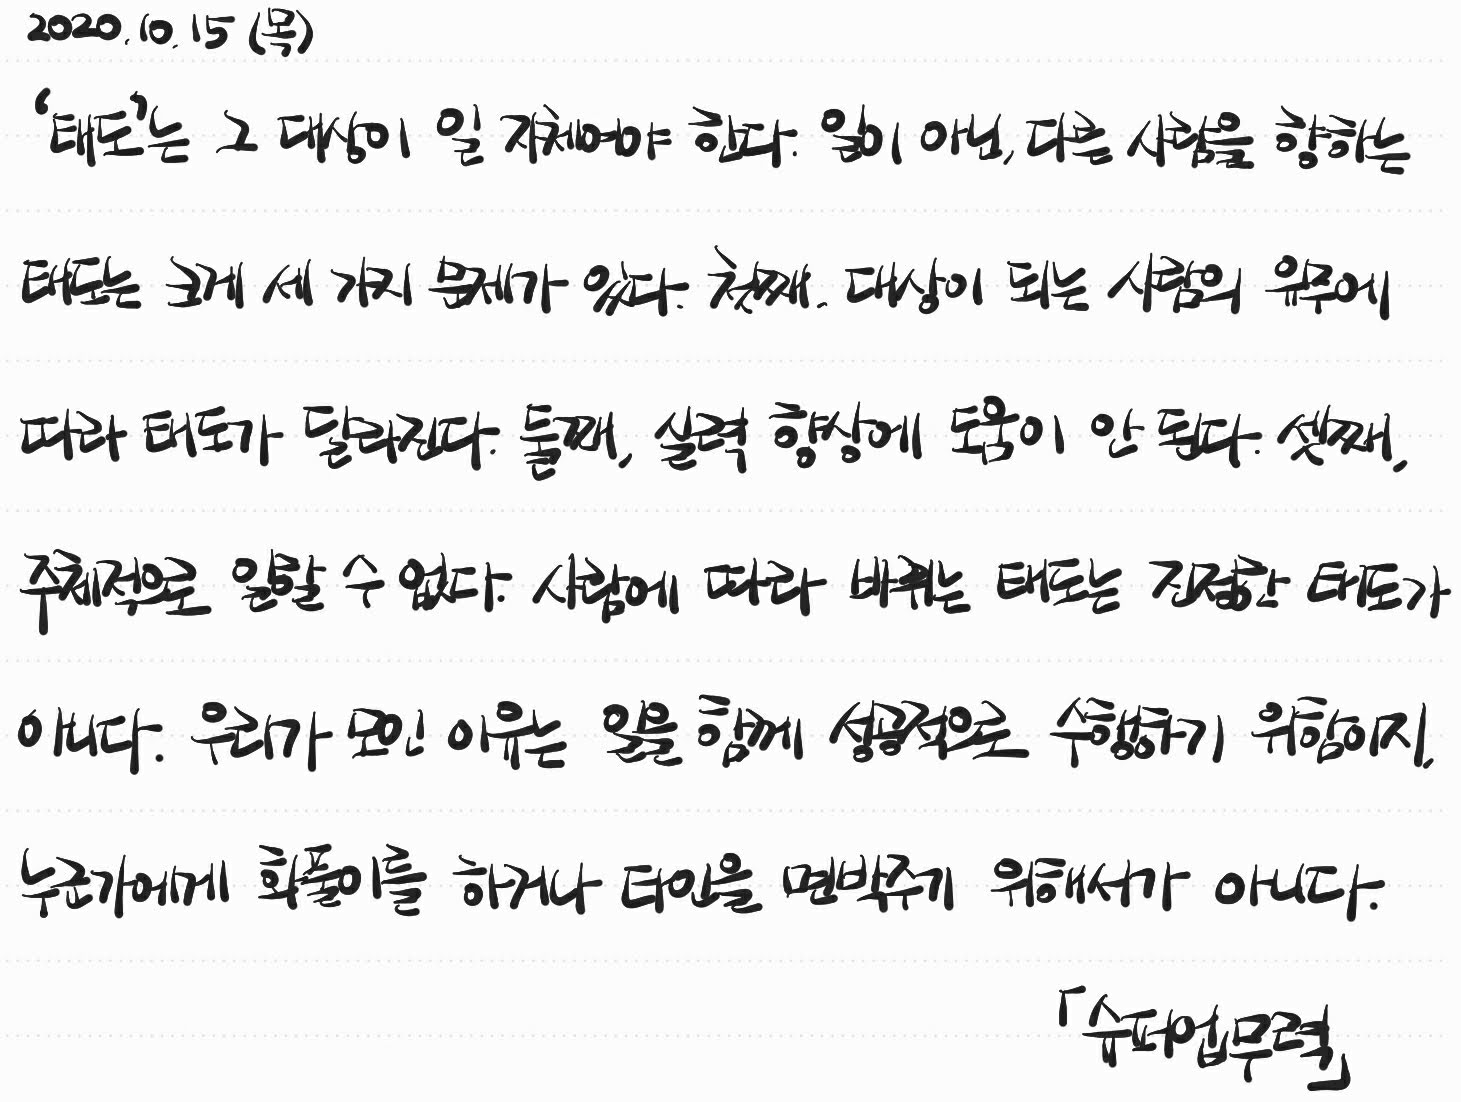 2020.10.15 (목)
'태도'는 그 대상이 일 자체여야 한다. 일이 아닌, 다른 사람을 향하는
태도는 크게 세 가지 문제가 있다. 첫째. 대상이 되는 사람의 유무에
따라 태도가 달라진다. 둘째, 실력 향상에 도움이 안 된다. 셋째,
주체적으로 일할 수 없다. 사람에 따라 바뀌는 태도는 진정한 태도가
아니다. 우리가 모인 이유는 일을 함께 성공적으로 수행하기 위함이지,
누군가에게 화풀이를 하거나 타인을 면박주기 위해서가 아니다.
「슈퍼업무력」